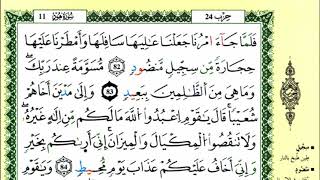 11 سورة هود حزب 24
فَلَمَّا جَآءَ امْرُنَا جَعَلْنَا عَٰلِيَهَا سَافِلَهَا وَأَمْطَرْنَا عَلَيْهَا
حِجَارَةً مِّن سِجِّيلٍ مَّنضُودٍ 82 مُّسَوَّمَةً عِندَ رَبِّكَ
وَمَا هِىَ مِنَ ٱلظَّٰلِمِينَ بِبَعِيدٍ 83 وَإِلَىٰ مَدْيَنَ أَخَاهُمْ
شُعَيْبًا قَالَ يَٰقَوْمِ ٱعْبُدُوا۟ ٱللَّهَ مَا لَكُم مِّنِ اِلَٰهٍ غَيْرُهُۥ
وَلَا نَنقُصُوا۟ ٱلْمِكْيَالَ وَٱلْمِيزَانَ إِنِّىَ أَرَىٰكُم بِخَيْرٍ
وَإِنِّىَ أَخَافُ عَلَيْكُمْ عَذَابَ يَوْمٍ مُّحِيطٍ 84 وَيَٰقَوْمِ
• سجيل
طين طبخ بالنار
• منضود